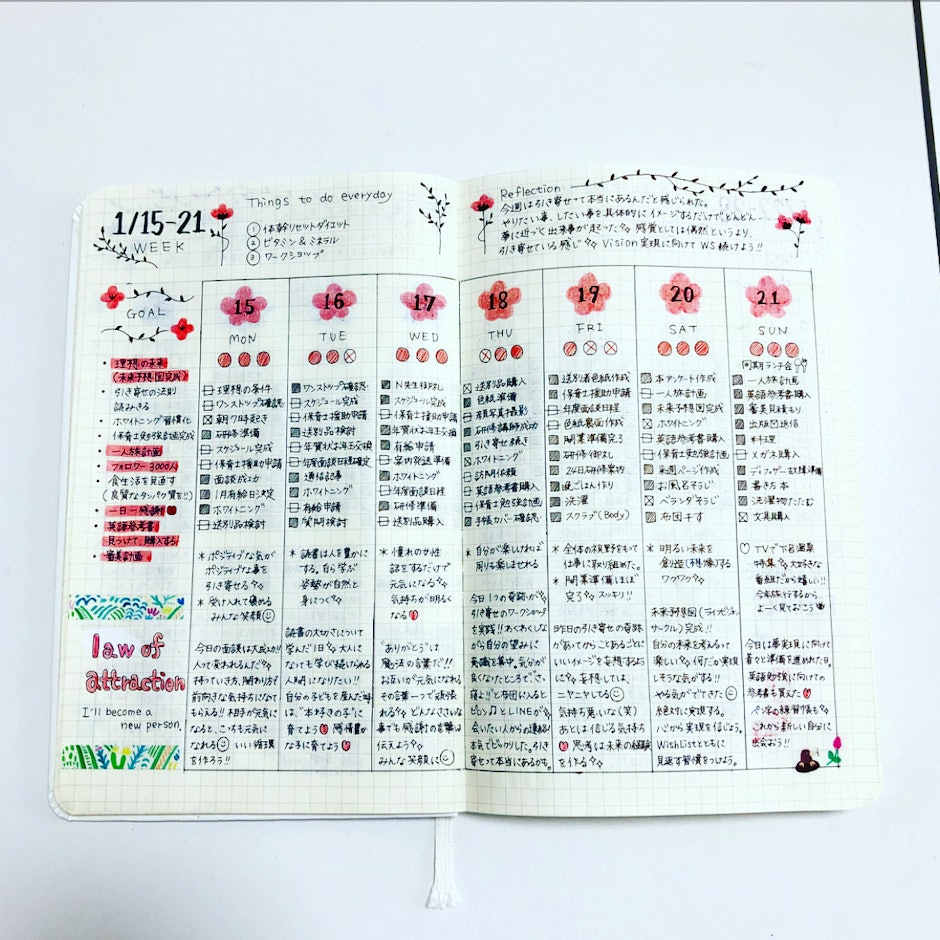 1/15-21
WEEK
Things to do everyday
① 体幹リセットダイエット
② ビタミン&ミネラル
③ ワークショップ
Reflection
今週は引き寄せって本当にあるんだと感じられた。
やりたい事、したい事を具体的にイメージするだけでどんどん
夢に近づく出来事が起った 感覚としては偶然というより、
引き寄せている感じ Vision実現に向けて WS続けよう!!
GOAL
・理想の未来
(未来予想図完成)
・引き寄せの法則
読みきる
・ホワイトニング習慣化
・保育士受験勉強計画完成
・一人旅計画
・フォロワー3000人
・食生活を見直す
(良質なタンパク質を!!)
・一日一感謝
・英語参考書
見つけて、購入する
・審美計画
law of
attraction
I'll become a
new person.
15
MON
理想の条件
ワンストップ確認
朝7時起き
研修準備
スケジュール完成
保育士援助申請
面談成功
1月有給日決定
ホワイトニング
送別品検討
* ポジティブな気が
ポジティブな事を
引き寄せる
* 受け入れて褒める
みんな笑顔
今日の面談は大成功!!
人って変われるんだ
持っていき方、関わり方で
前向きな気持ちになって
もらえる!!相手が元気に
なると、こっちも元気に
なれる いい循環
を作ろう!!
16
TUE
ワンストップ確認
スケジュール完成
保育士援助申請
送別品検討
年賀状お年玉交換
年度面談日程確定
通信記事
ホワイトニング
有給申請
質問検討
* 読書は人を豊かに
する。自ら学ぶ
姿勢が自然と
身につく
読書の大切さについて
学んだ1日 大人に
なっても学び続けられる
人間になりたい!!
自分の子どもを産んだ時
は、"本好きの子"に
育てよう 感情豊か
な子に育てよう
17
WED
スケジュール完成
保育士援助申請
年賀状お年玉交換
有給申請
案内発送準備
ホワイトニング
年度面談日程
研修準備
送別品購入
* 憧れの女性
話をするだけで
元気になる
気持ちが明るく
なる
「ありがとう」は
魔法の言葉だ!!
お互いが元気になれる
その言葉一つで頑張
れる どんな小さな
事でも感謝の言葉は
伝えよう
みんな笑顔に
18
THU
送別品購入
色紙準備
背景写真撮影
研修講師成功
引き寄せ続き
ホワイトニング
訪問依頼
英語参考書購入
保育士勉強計画
手帳カバー確認
* 自分が楽しければ
周りも楽しませれる
今日1つの奇跡が
引き寄せのワークショップ
を実践!!わくわくしな
がら自分の望みに
意識を集中。気分が
良くなったところで"さ、
寝よ!!"と布団に入ると
ピロン♪とLINEが
会いたい人からの連絡!
本気でビックリした。引き
寄せって本当にあるかも。
19
FRI
送別者色紙作成
保育士援助申請
年度面談日程
色紙裏面作成
開業準備完了
研修御礼
24日研修案内
晩ごはん作り
洗濯
スクラブ(Body)
* 全体の水視野をもって
仕事に取り組めた。
* 開業準備ほぼ
完了 スッキリ!!
昨日の引き寄せの奇跡
があってからことあるごとに
いいイメージを妄想するよう
に 妄想しては、
ニヤニヤしてる
気持ち悪いな(笑)
あとは信じる気持ち
思考は未来の経験
を作る
20
SAT
本アンケート作成
一人旅計画
未来予想図完成
ホワイトニング
英語参考書購入
保育士勉強計画
来週ページ作成
お風呂そうじ
ベランダそうじ
布団干す
* 明るい未来を
創造(想像)する
ワクワク
未来予想図(ライフビジョン
サークル)完成!!
自分の未来を考えるって
楽しい 何だか実現
しそうな気がする!!
やる気がでてきた
絶対に実現する。
心から実現を信じよう。
WishListとともに
見返す習慣をつけよう。
21
SUN
同期ランチ会
一人旅計画
英語参考書購入
審美見積もり
出版図返信
料理
メガネ購入
書き方本
洗濯物たたむ
文具購入
♡ TVで下呂温泉
特集 大好きな
番組だから嬉しい!!
今年旅行するから
よーく見ておこう
今日は夢実現に向けて
着々と準備を進めた日。
英語勉強に向けての
参考書も買えた
ペン字の練習帳も
これから新しい自分に
出会おう!!